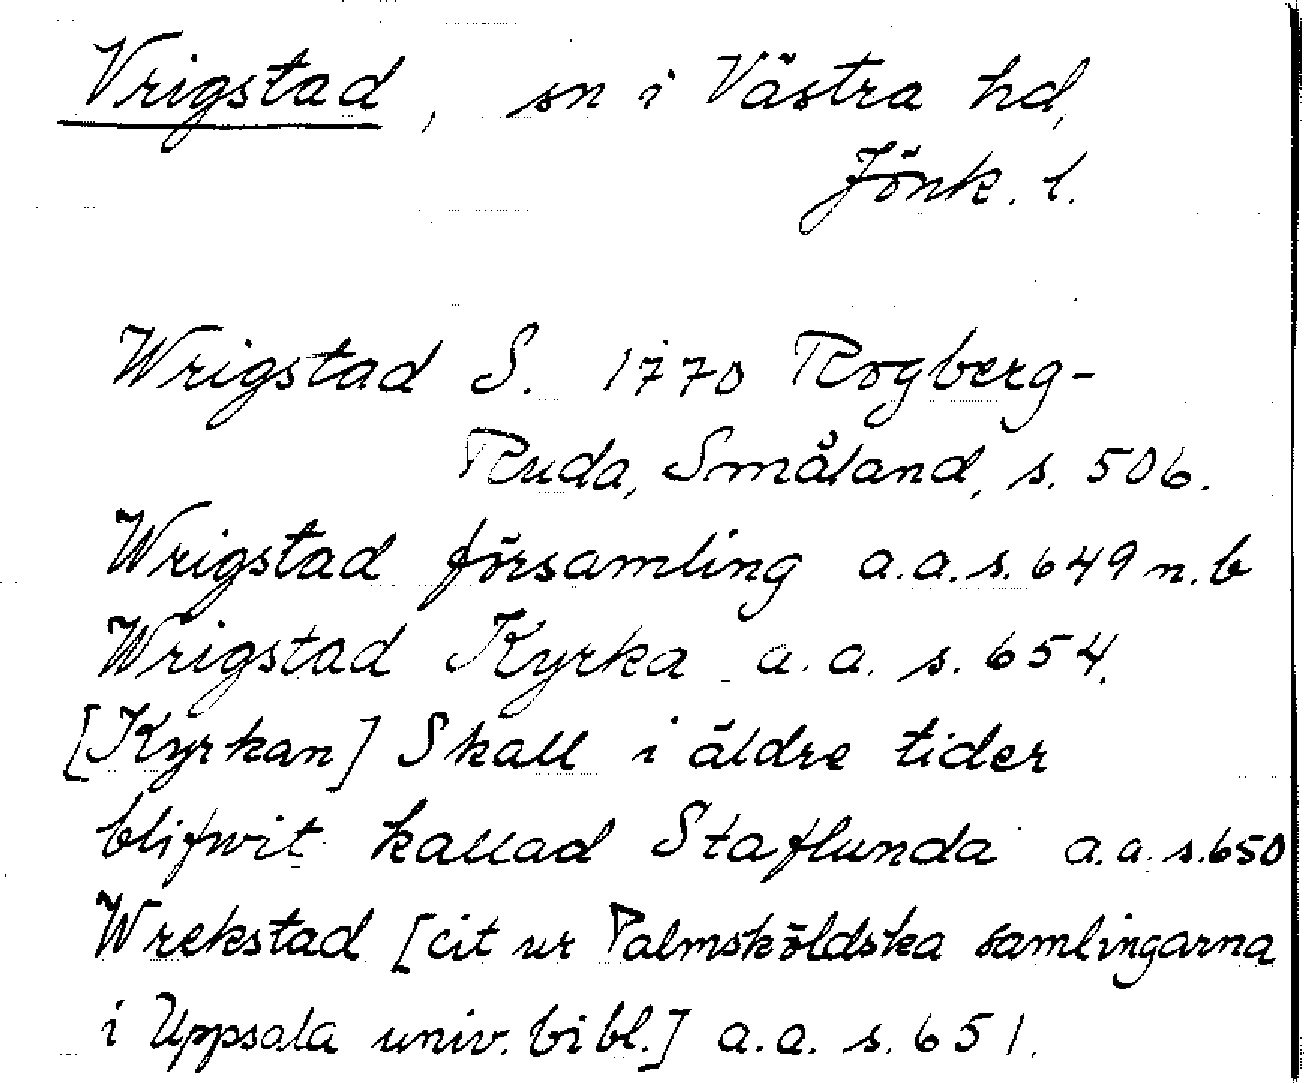 Vrigstad, sn i Västra hd,
Jönk. l.
Wrigstad S. 1770 Rogberg-
Ruda, Småland, s. 506.
Wrigstad församling a.a.s. 649 n.b
Wrigstad Kyrka a.a. s. 654.
[Kyrkan] Skall i äldre tider
blifwit kallad Staflunda a.a. s. 650
Wrekstad [cit ur Palmsköldska samlingarna
i Uppsala univ. bibl.] a.a. s. 651.